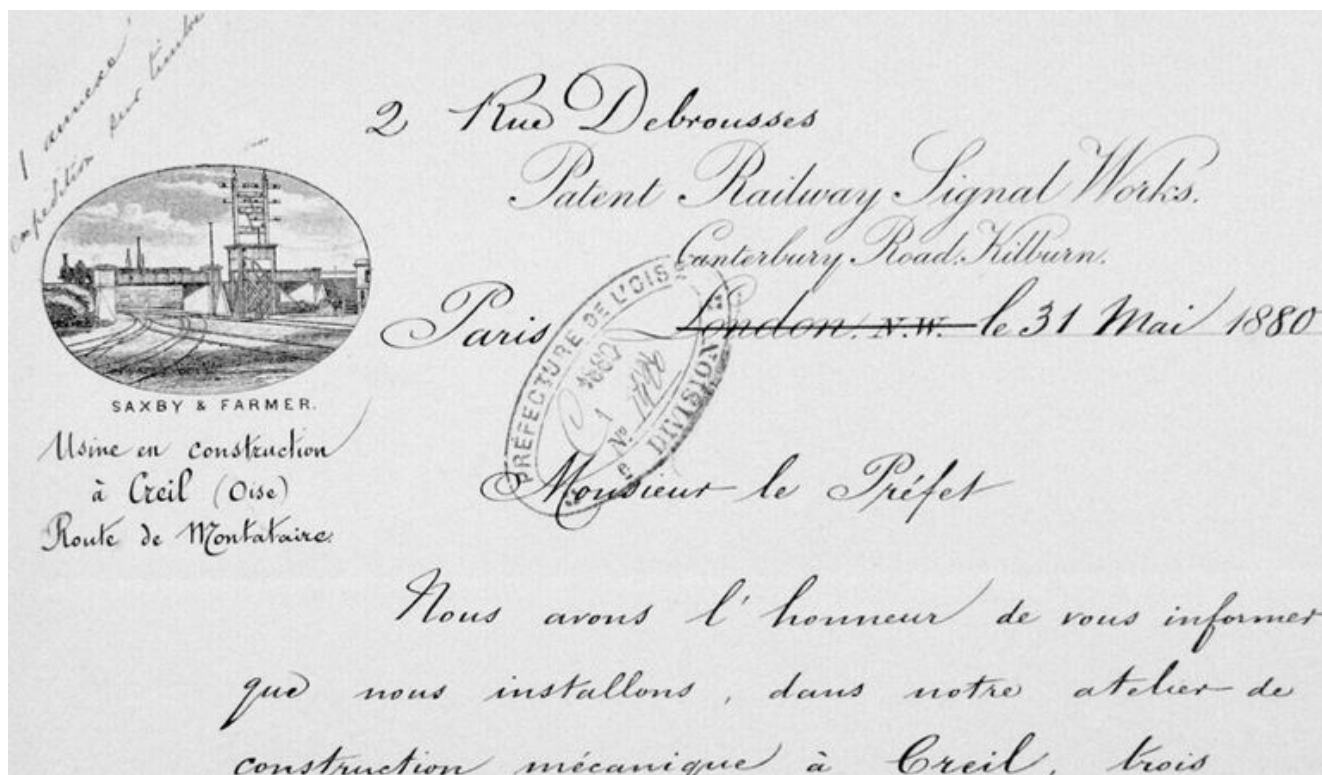 1 annexe
expédition sur timbre
2 Rue Debrousses
Patent Railway Signal Works.
Canterbury Road. Kilburn.
Paris London. N.W. le 31 Mai 1880
PRÉFECTURE DE L'OISE
1880
1
No
e DIVISION
SAXBY & FARMER.
Usine en construction
à Creil (Oise)
Route de Montataire.
Monsieur le Préfet
Nous avons l'honneur de vous informer
que nous installons, dans notre atelier de
construction mécanique à Creil, trois